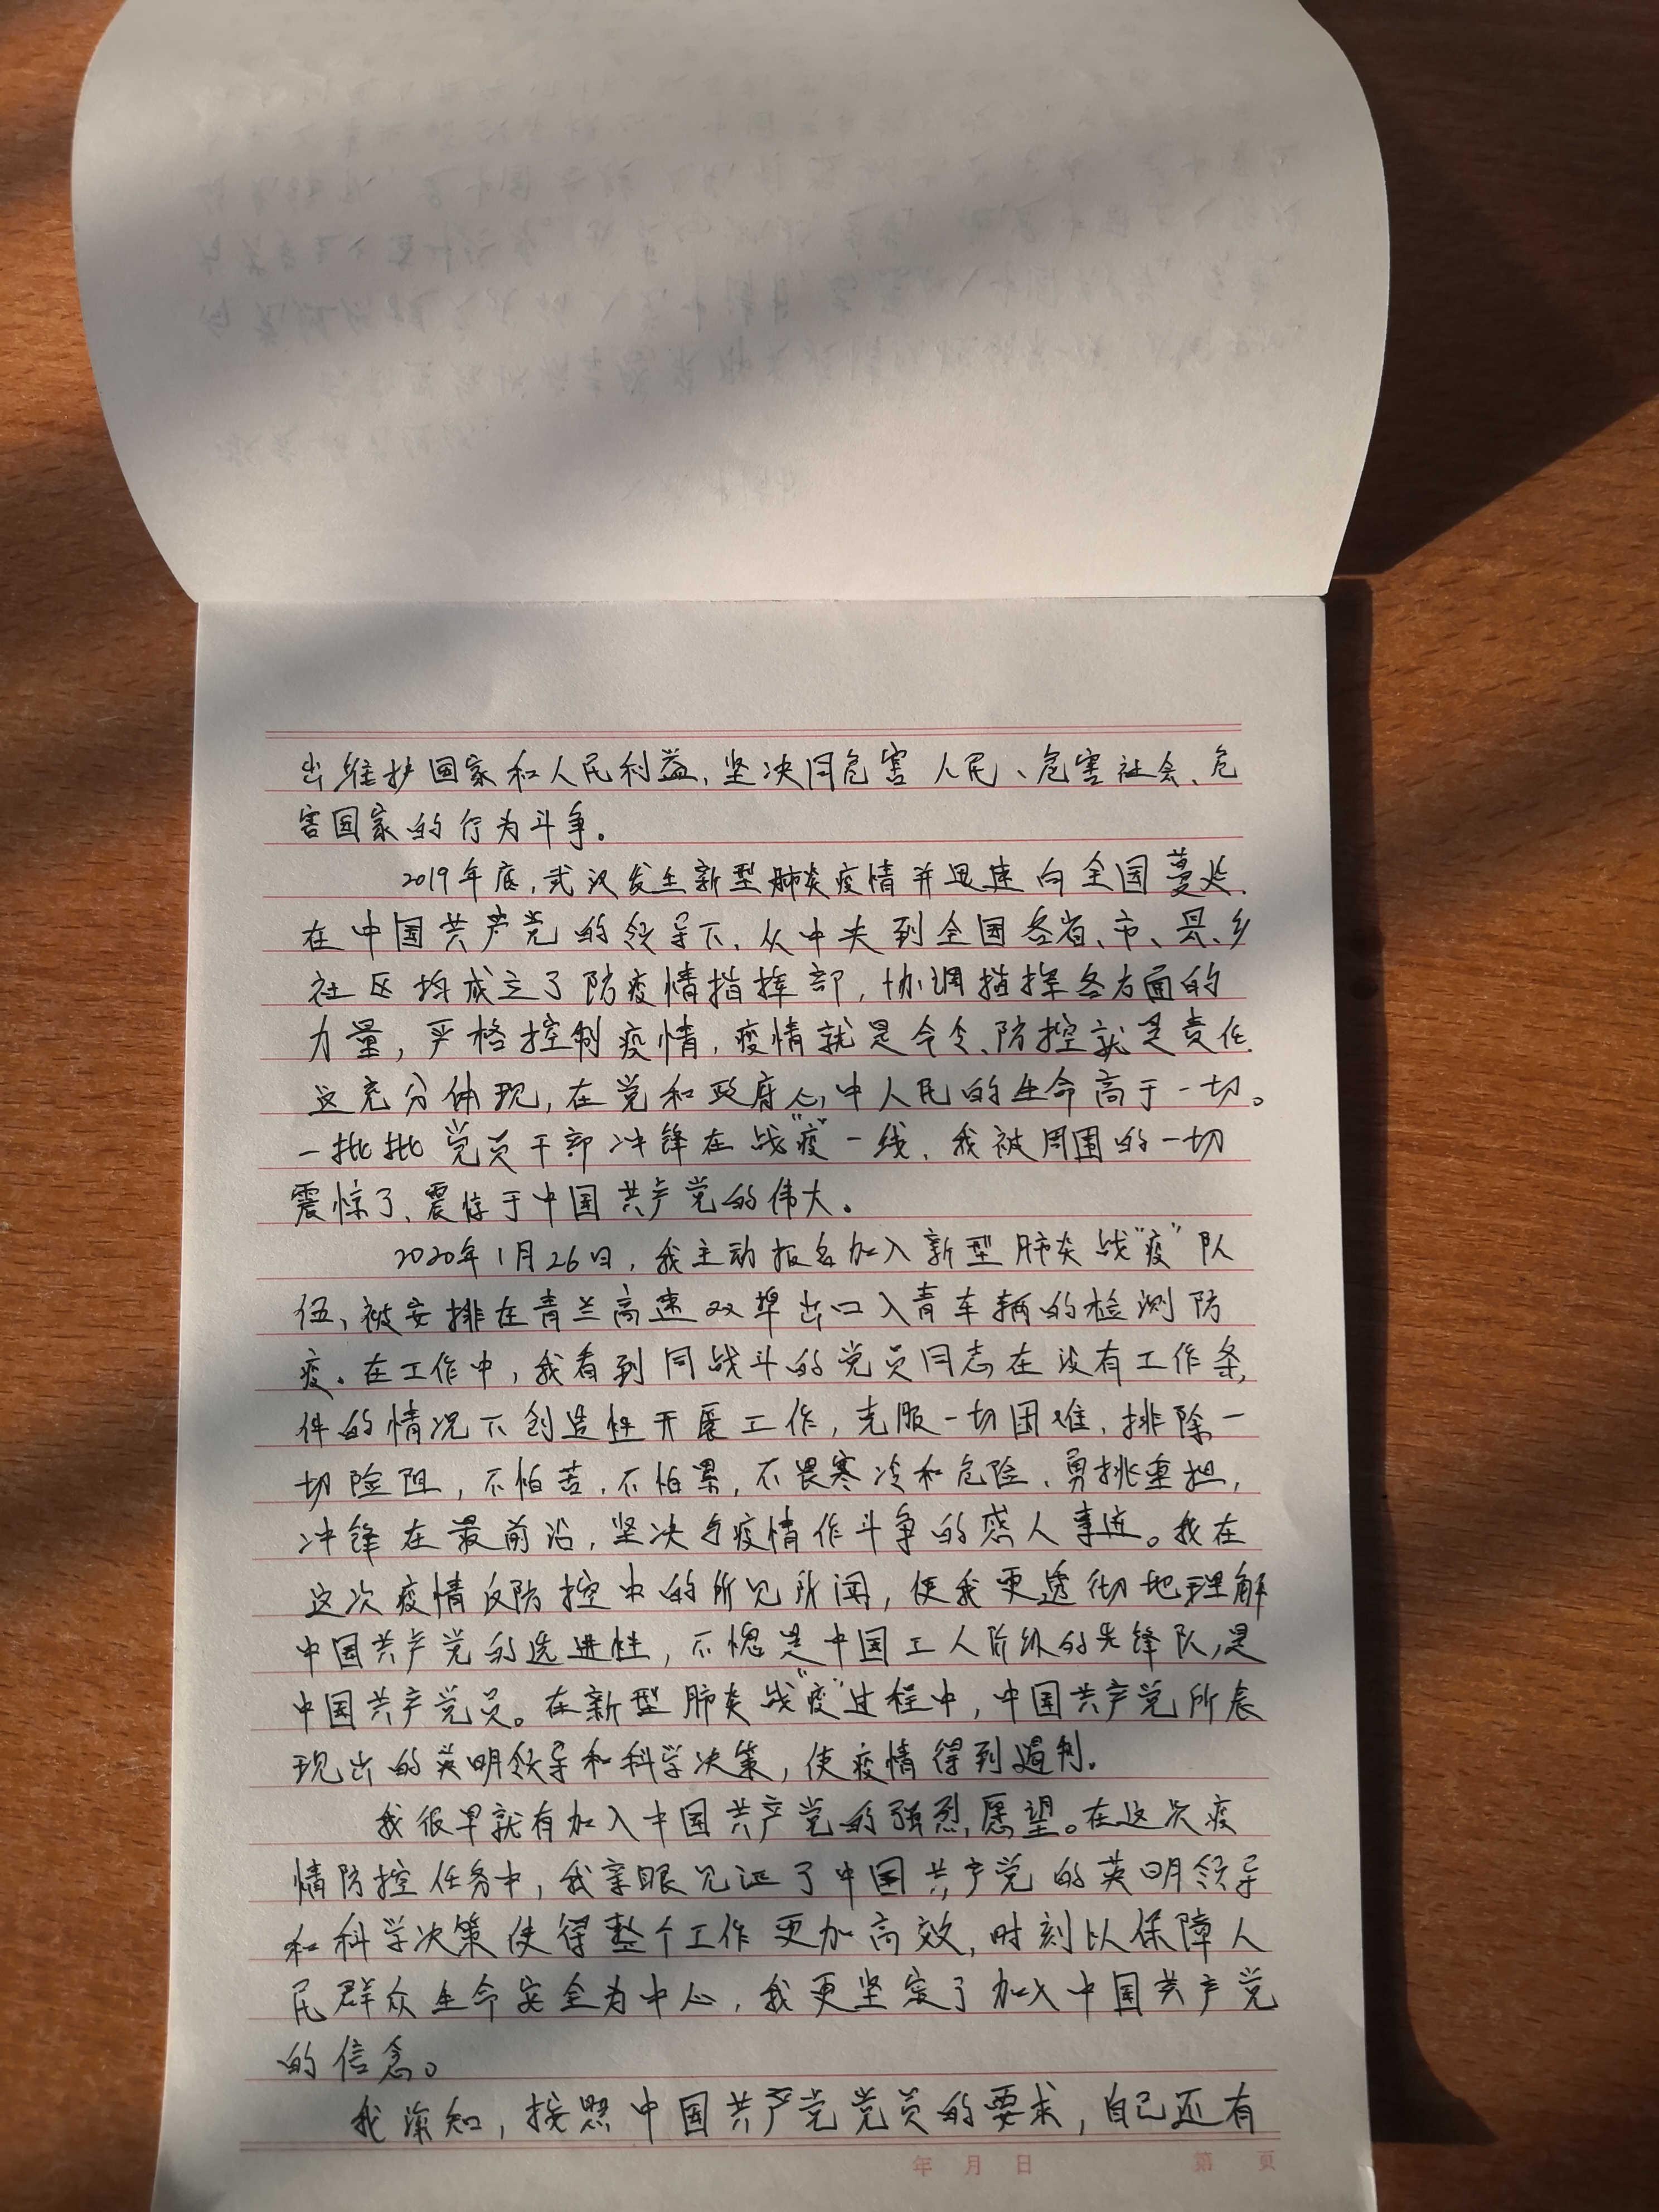 出维护国家和人民利益,坚决同危害人民、危害社会、危
害国家的行为斗争。
2019年底,武汉发生新型肺炎疫情并迅速向全国蔓延.
在中国共产党的领导下、从中央到全国各省、市、县、乡
社区均成立了防疫情指挥部,协调指挥各方面的
力量,严格控制疫情,疫情就是命令、防控就是责任.
这充分体现,在党和政府心中人民的生命高于一切。
一批批党员干部冲锋在战“疫”一线、我被周围的一切
震惊了、震惊于中国共产党的伟大。
2020年1月26日,我主动报名加入新型肺炎战“疫”队
伍,被安排在青兰高速双埠出口入青车辆的检测防
疫。在工作中,我看到同战斗的党员同志在没有工作条
件的情况下创造性开展工作,克服一切困难、排除一
切险阻,不怕苦.不怕累,不畏寒冷和危险、勇挑重担,
冲锋在最前沿,坚决与疫情作斗争的感人事迹。我在
这次疫情反防控中的所见所闻,使我更透彻地理解
中国共产党的先进性,不愧是中国工人阶级的先锋队,是
中国共产党员。在新型肺炎战“疫”过程中,中国共产党所展
现出的英明领导和科学决策,使疫情得到遏制.
我很早就有加入中国共产党的强烈愿望。在这次疫
情防控任务中,我亲眼见证了中国共产党的英明领导
和科学决策使得整个工作更加高效,时刻以保障人
民群众生命安全为中心,我更坚定了加入中国共产党
的信念。
我深知,按照中国共产党党员的要求,自己还有
年 月 日 第 页